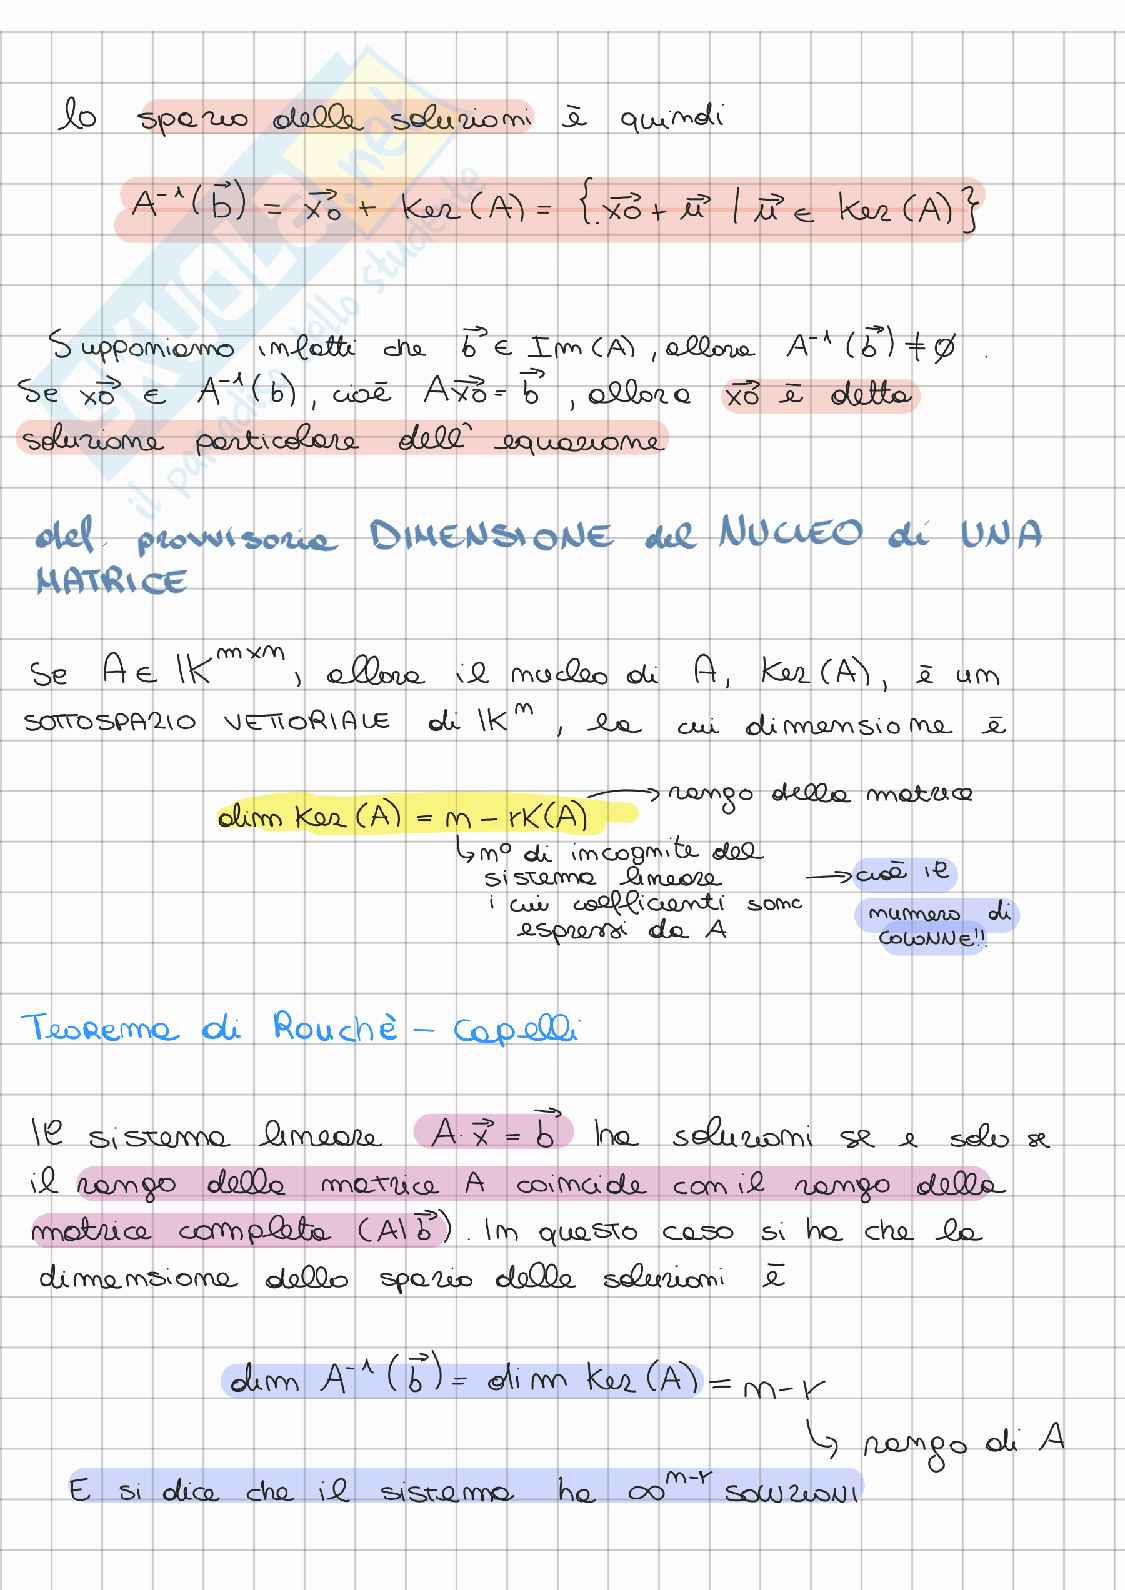 lo spazio delle soluzioni è quindi
A⁻¹(b⃗) = x⃗₀ + Ker(A) = {x⃗₀ + u⃗ | u⃗ ∈ Ker(A)}
Supponiamo infatti che b⃗ ∈ Im(A), allora A⁻¹(b⃗) ≠ ∅.
Se x⃗₀ ∈ A⁻¹(b), cioè Ax⃗₀ = b⃗, allora x⃗₀ è detta
soluzione particolare dell' equazione
def. provvisoria DIMENSIONE del NUCLEO di UNA
MATRICE
Se A ∈ IK^{m×n}, allora il nucleo di A, Ker(A), è un
SOTTOSPAZIO VETTORIALE di IKⁿ, la cui dimensione è
dim Ker(A) = n - rK(A) → rango della matrice
↳ n° di incognite del
sistema lineare → cioè il
i cui coefficienti sono numero di
espressi da A COLONNE!!
Teorema di Rouchè - Capelli
Il sistema lineare A·x⃗ = b⃗ ha soluzioni se e solo se
il rango della matrice A coincide con il rango della
matrice completa (A|b⃗). In questo caso si ha che la
dimensione dello spazio delle soluzioni è
dim A⁻¹(b⃗) = dim Ker(A) = n - r
↳ rango di A
E si dice che il sistema ha ∞^{n-r} SOLUZIONI
SKUOLA.net
il paradiso dello studente